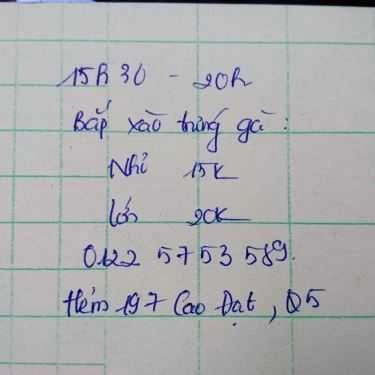 15h30 - 20h
Bắp xào trứng gà :
Nhỏ 15K
Lớn 20K
0122 5753 589.
Hẻm 197 Cao Đạt, Q5